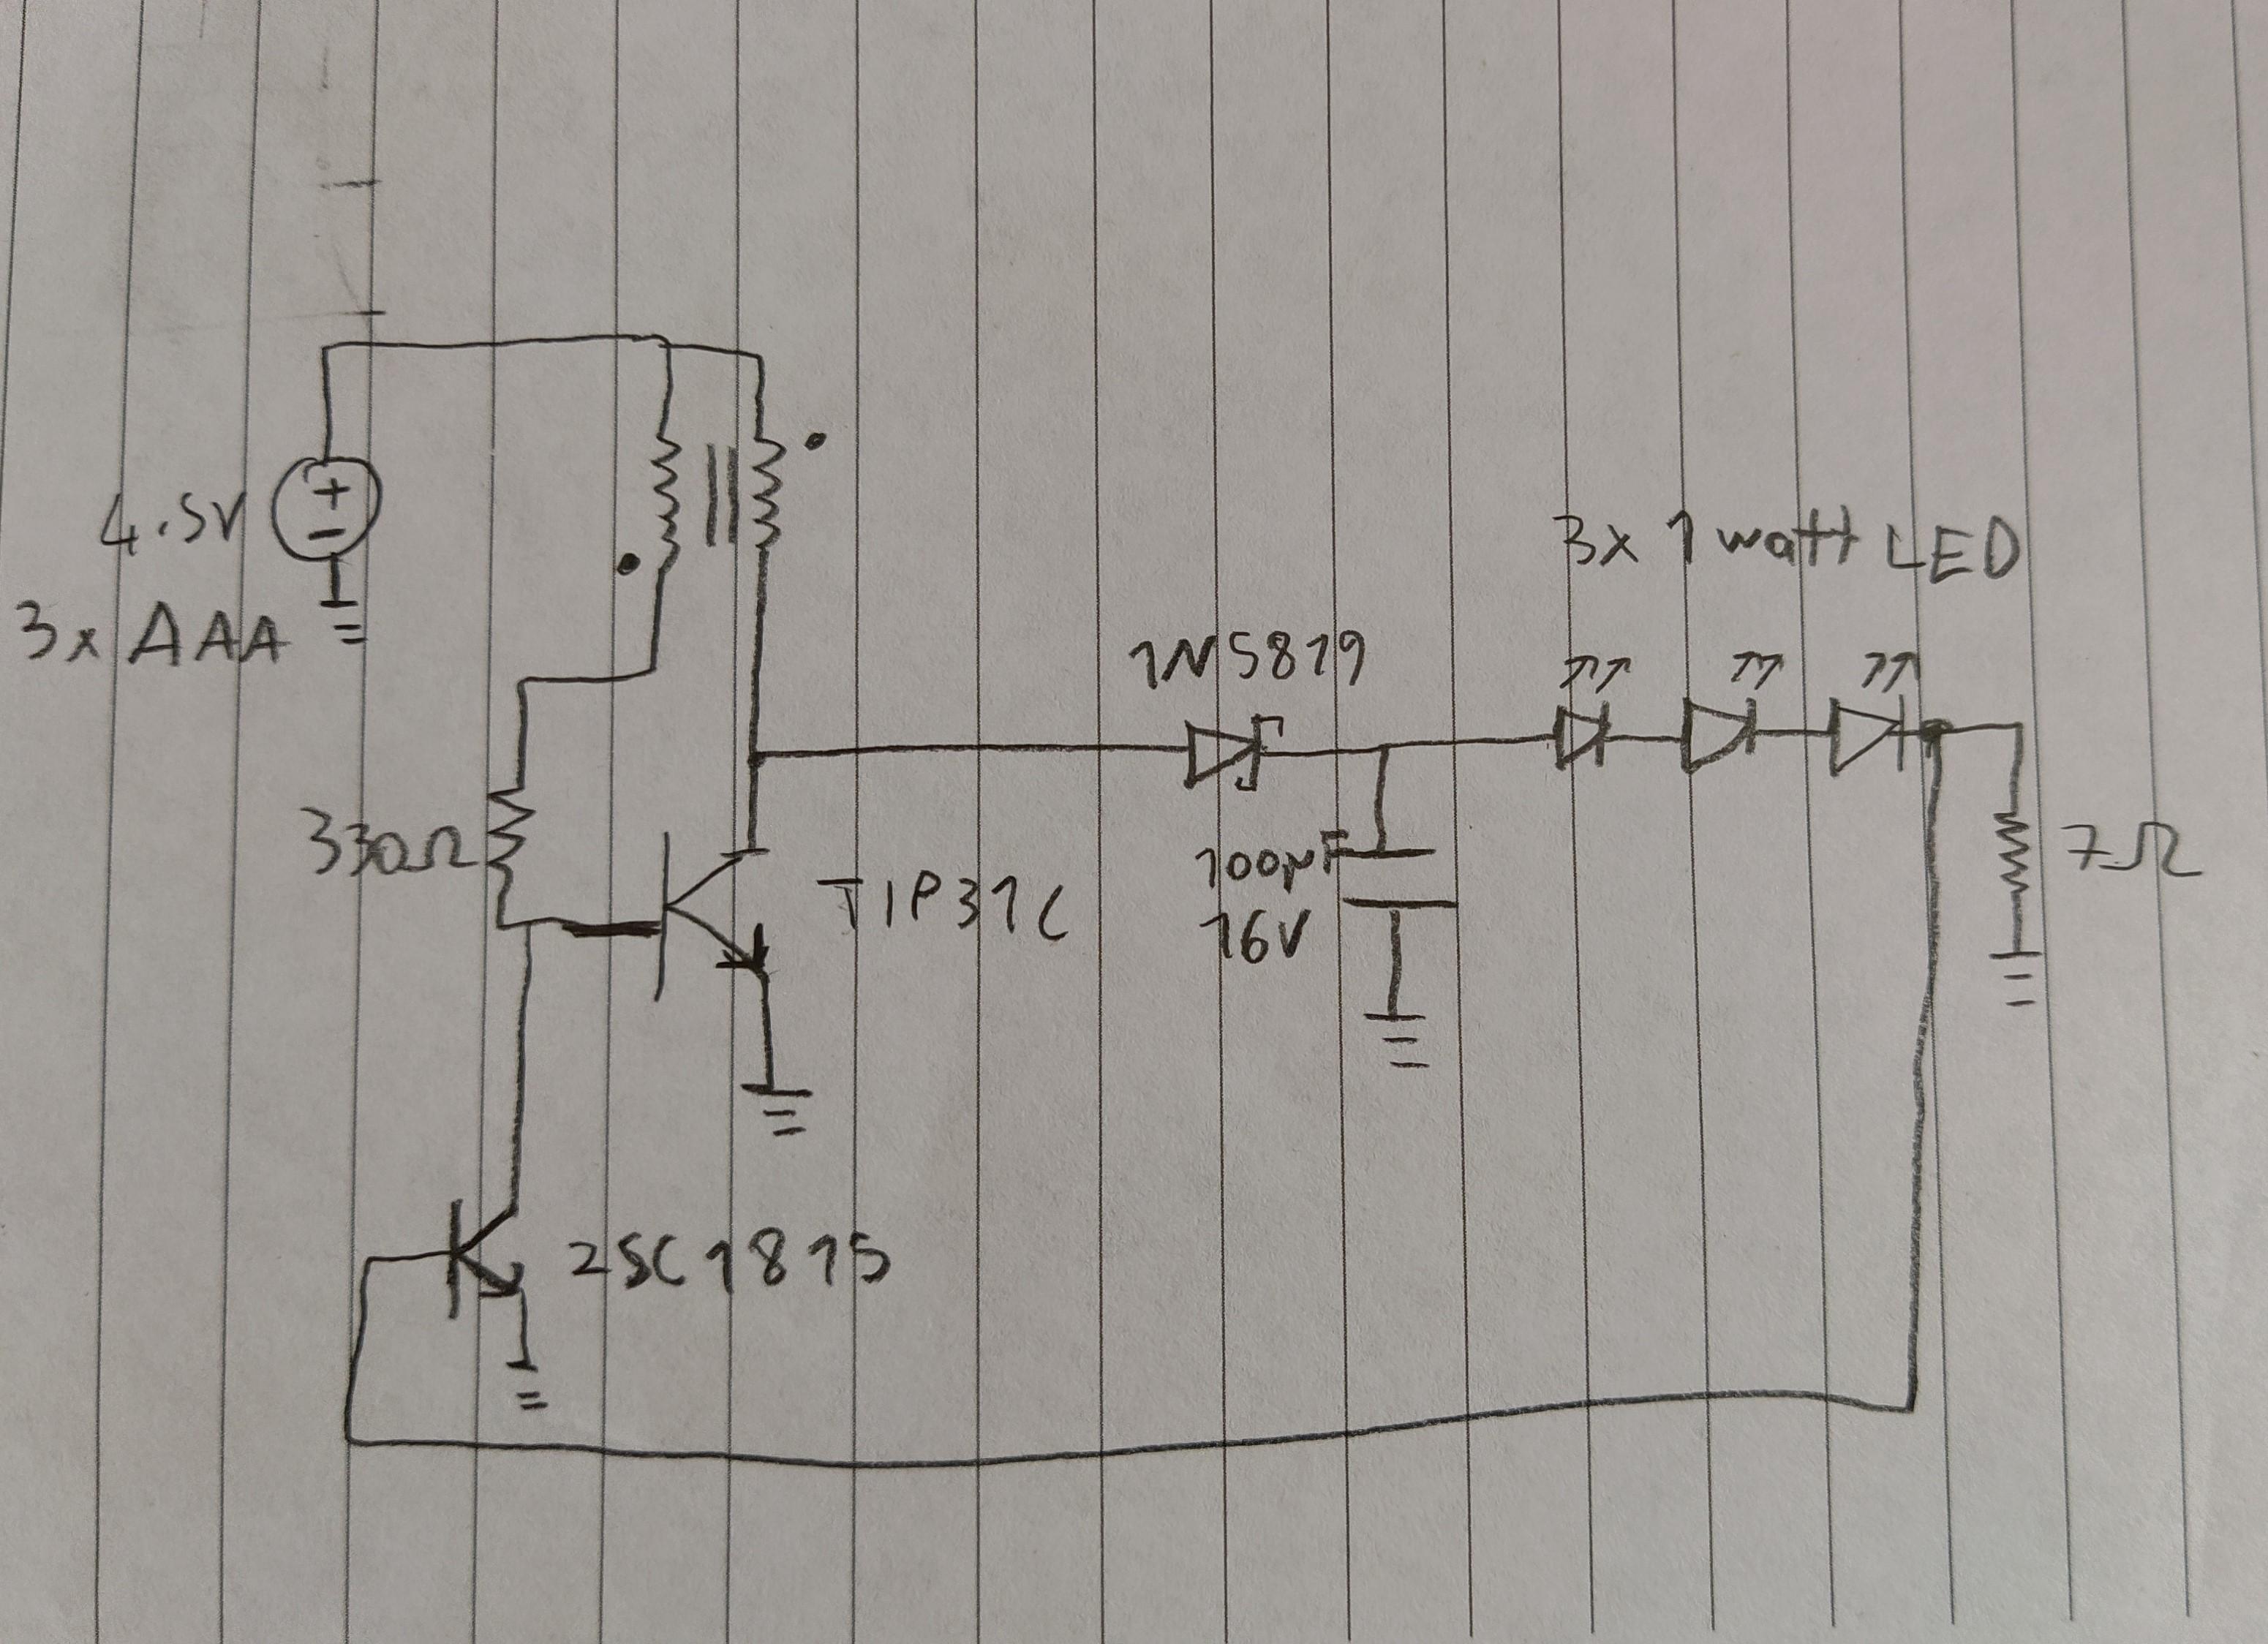 4.5V
3x AAA
330Ω
TIP31C
2SC1815
1N5819
100µF
16V
3x 1 watt LED
7Ω